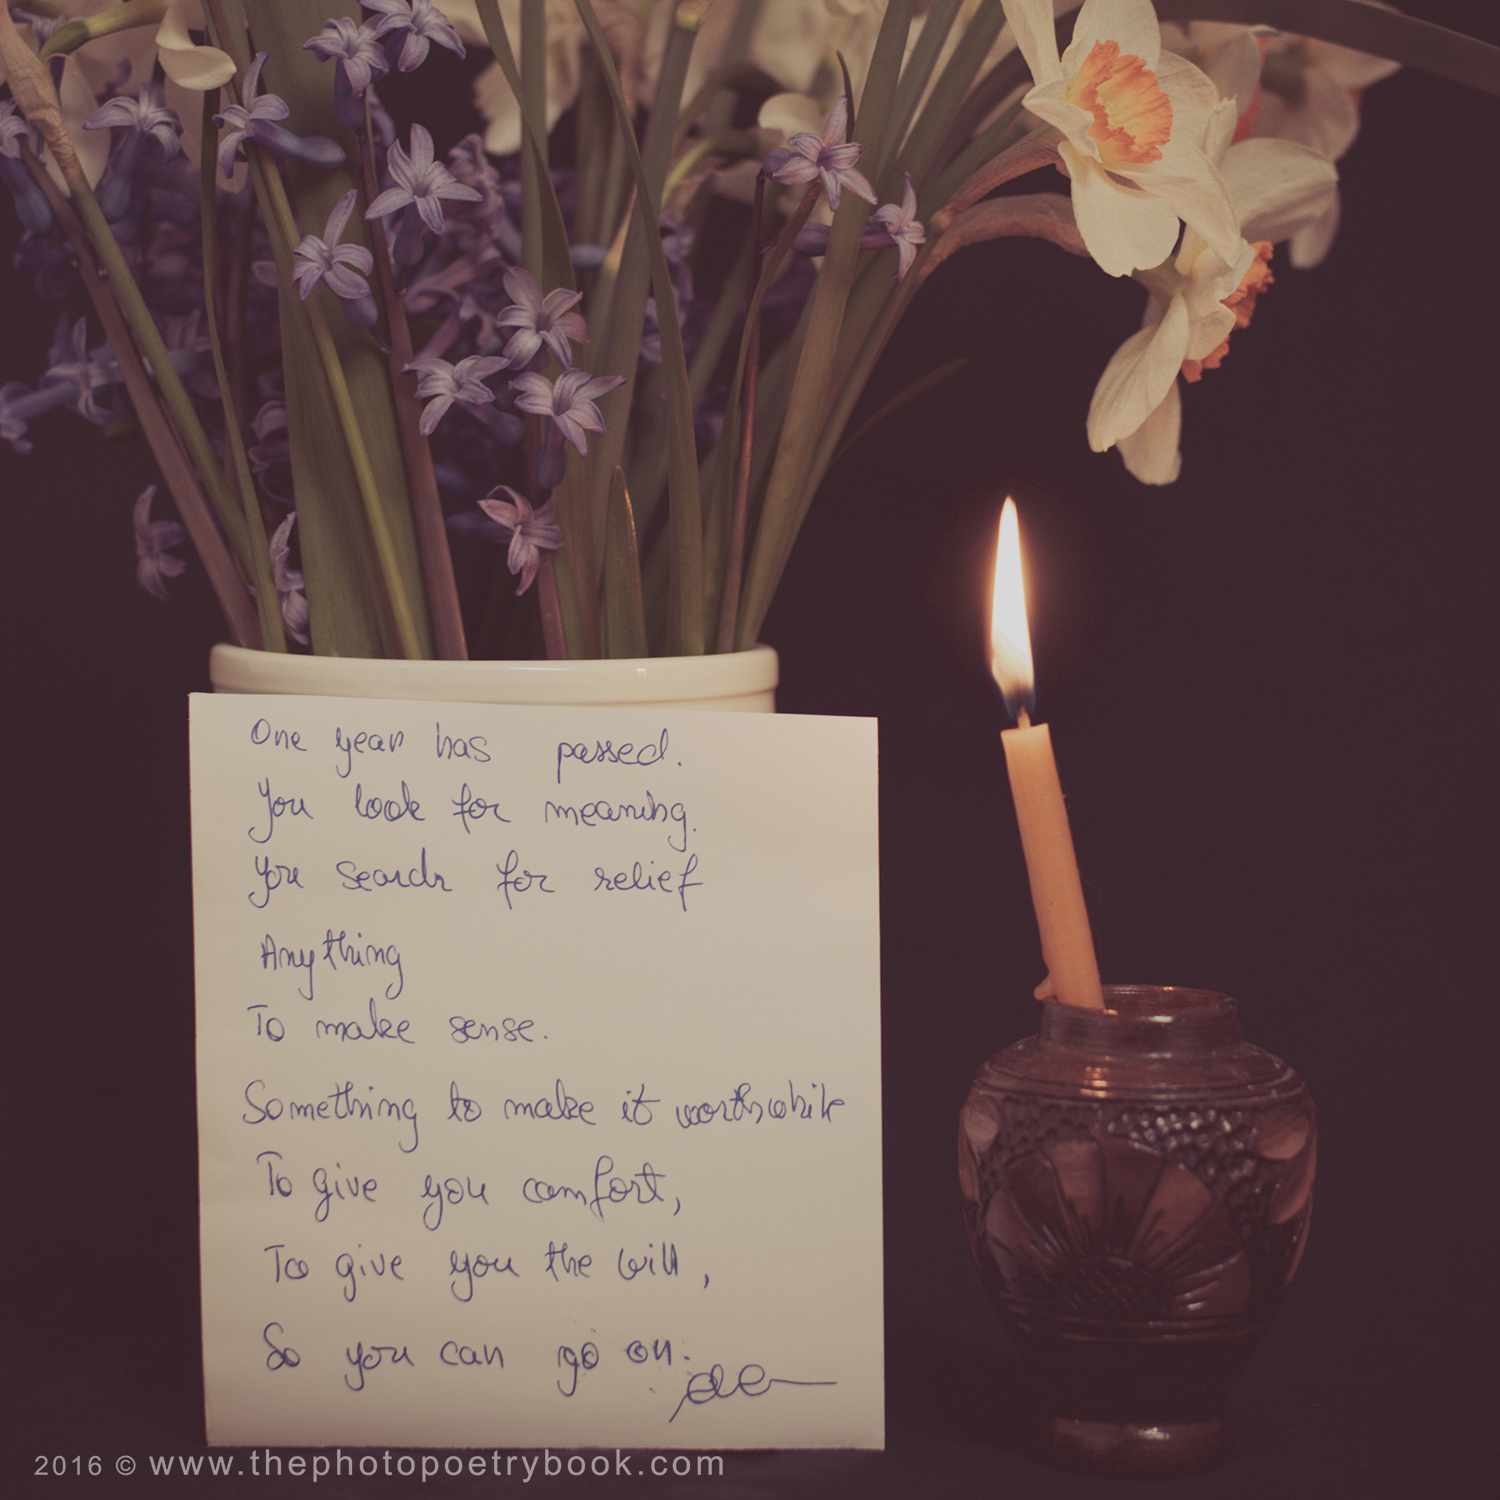 One year has passed.
You look for meaning.
You search for relief
Anything
To make sense.
Something to make it worthwhile
To give you comfort,
To give you the will,
So you can go on.
2016 © www.thephotopoetrybook.com